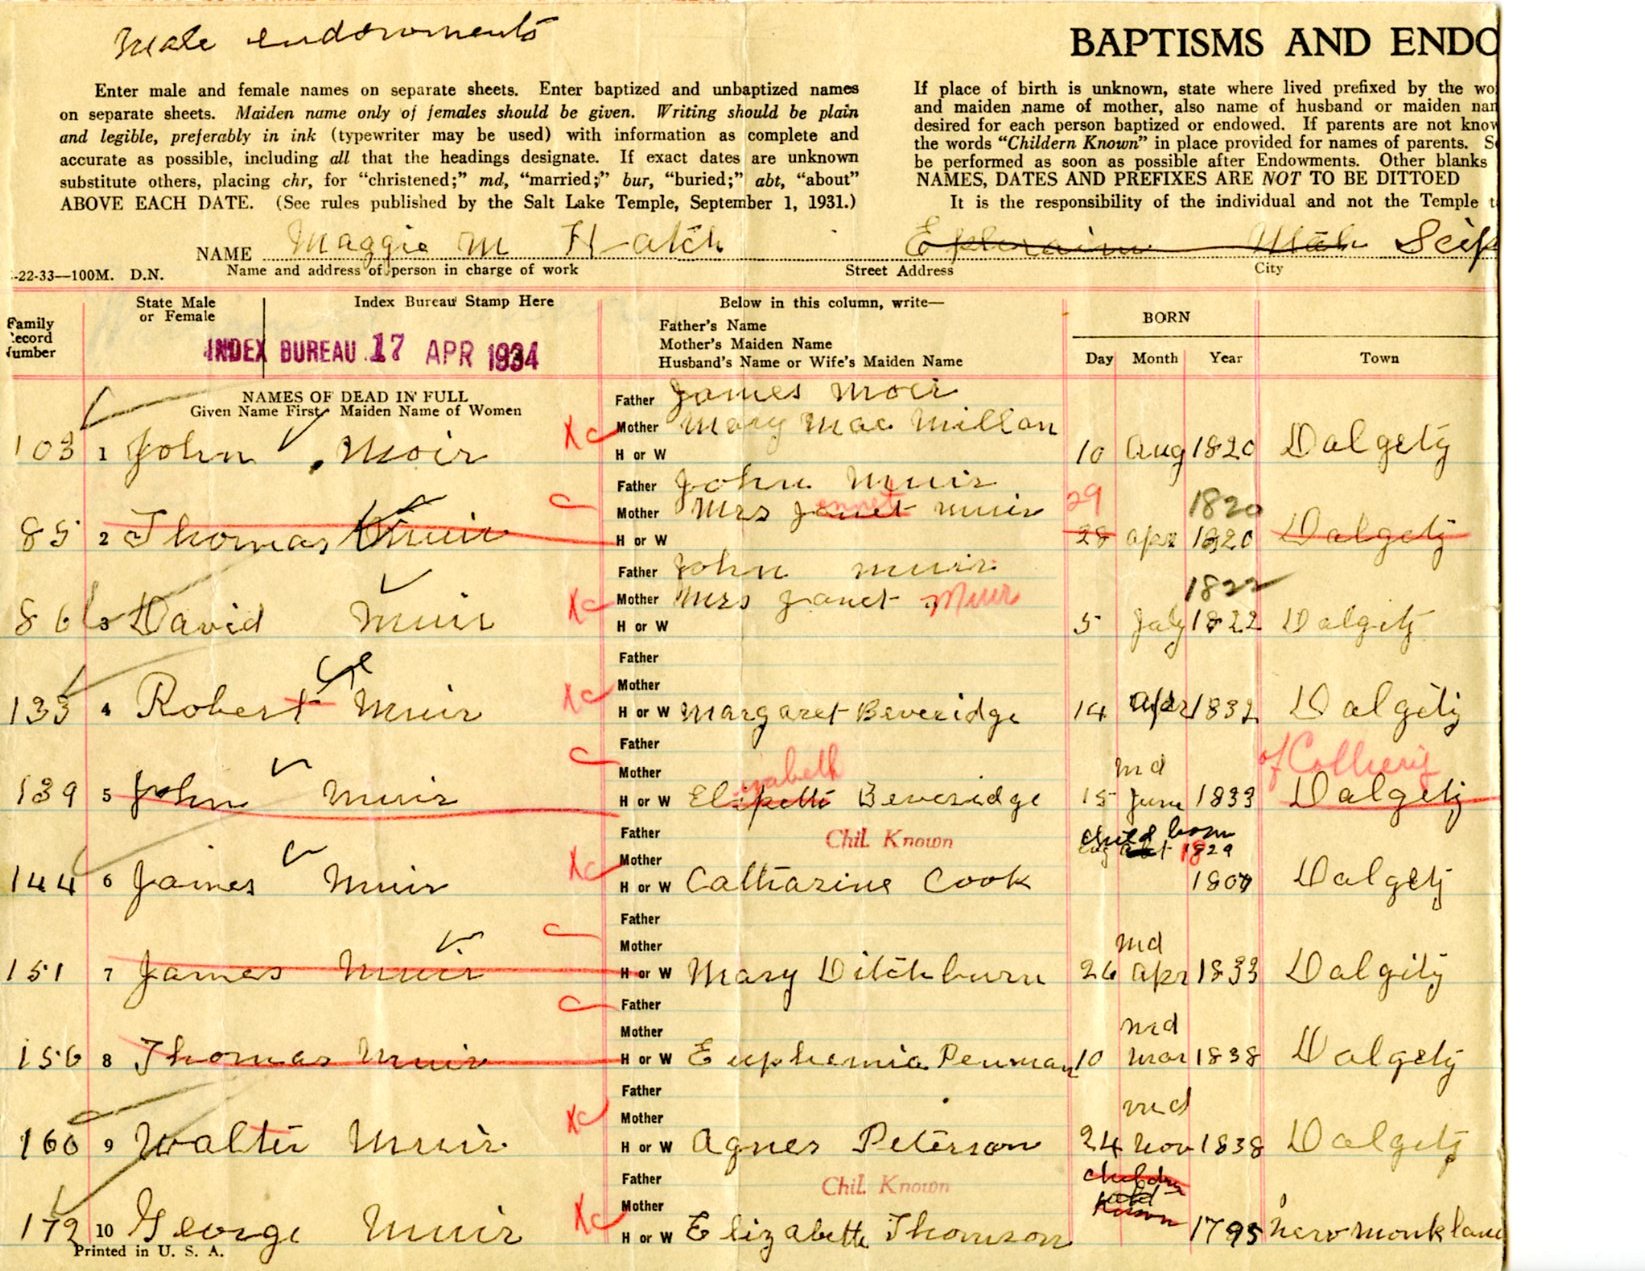 Male endowments
BAPTISMS AND ENDO
Enter male and female names on separate sheets. Enter baptized and unbaptized names
on separate sheets. Maiden name only of females should be given. Writing should be plain
and legible, preferably in ink (typewriter may be used) with information as complete and
accurate as possible, including all that the headings designate. If exact dates are unknown
substitute others, placing chr, for "christened;" md, "married;" bur, "buried;" abt, "about"
ABOVE EACH DATE. (See rules published by the Salt Lake Temple, September 1, 1931.)
If place of birth is unknown, state where lived prefixed by the wo
and maiden name of mother, also name of husband or maiden nam
desired for each person baptized or endowed. If parents are not know
the words "Childern Known" in place provided for names of parents. Se
be performed as soon as possible after Endowments. Other blanks
NAMES, DATES AND PREFIXES ARE NOT TO BE DITTOED
It is the responsibility of the individual and not the Temple t
NAME Maggie M Hatch Ephraim Utah Scip
-22-33—100M. D.N. Name and address of person in charge of work Street Address City
Family Record Number
State Male or Female
Index Bureau Stamp Here
INDEX BUREAU 17 APR 1934
Below in this column, write—
Father's Name
Mother's Maiden Name
Husband's Name or Wife's Maiden Name
BORN
Day Month Year Town
NAMES OF DEAD IN FULL
Given Name First, Maiden Name of Women
Father James Moir
Mother Mary Mac Millan
103 1 John Moir H or W 10 Aug 1820 Dalgety
Father John Muir
Mother Mrs Janet Muir 29 1820
85 2 Thomas Muir H or W 28 apr 1820 Dalgety
Father John Muir 1822
Mother Mrs Janet Muir
86 3 David Muir H or W 5 July 1822 Dalgity
Father
Mother
133 4 Robert Muir H or W Margaret Beveridge 14 apr 1832 Dalgity
Father of Colliery
Mother zabeth md
139 5 John Muir H or W Elspeth Beveridge 15 June 1833 Dalgety
Father Chil. Known child born
Mother 1829
144 6 James Muir H or W Catharine Cook 1804 Dalgety
Father
Mother md
151 7 James Muir H or W Mary Ditchburn 26 apr 1833 Dalgity
Father
Mother md
156 8 Thomas Muir H or W Euphemia Penman 10 mar 1838 Dalgety
Father
Mother md
160 9 Walter Muir H or W Agnes Peterson 24 Nov 1838 Dalgety
Father Chil. Known
Mother Known
172 10 George Muir H or W Elizabeth Thomson 1795 New monkland
Printed in U. S. A.